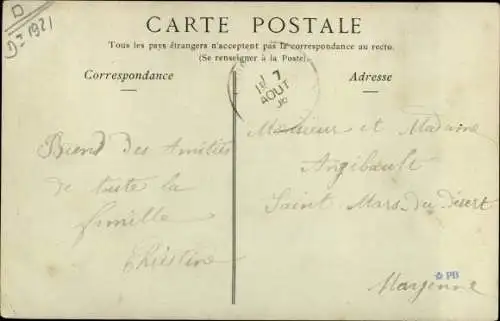 D
D3 1921
CARTE POSTALE
Tous les pays étrangers n'acceptent pas la correspondance au recto.
(Se renseigner à la Poste).
Correspondance
Adresse
7
AOUT
Monsieur et Madame
Angibault
Saint Mars du Désert
Mayenne
Biend des Amitiés
de toute la
famille
Christine
PB